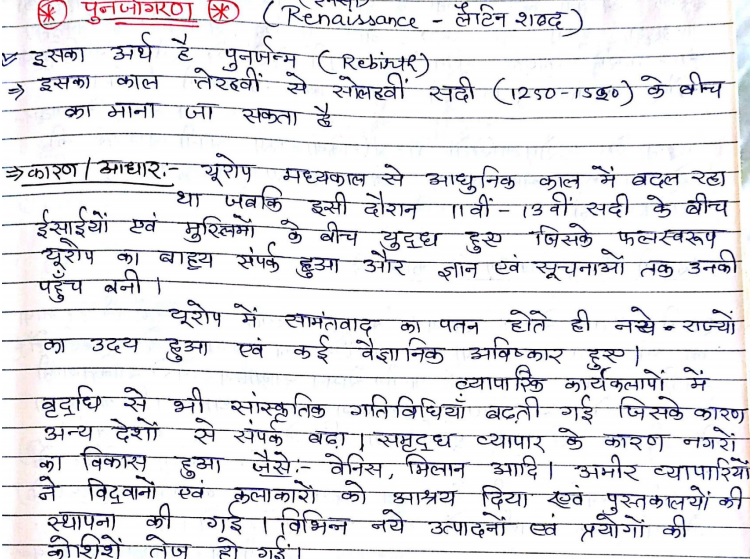 पुनर्जागरण (Renaissance - लैटिन शब्द)
इसका अर्थ है पुनर्जन्म (Rebirth)
⇒ इसका काल तेरहवीं से सोलहवीं सदी (1250-1550) के बीच
का माना जा सकता है
⇒ कारण/आधार:- यूरोप मध्यकाल से आधुनिक काल में बदल रहा
था जबकि इसी दौरान 11वीं - 13वीं सदी के बीच
ईसाईयों एवं मुस्लिमों के बीच युद्ध हुए जिसके फलस्वरूप
यूरोप का बाहय संपर्क हुआ और ज्ञान एवं सूचनाओं तक उनकी
पहुँच बनी।
यूरोप में सामंतवाद का पतन होते ही नये-राज्यों
का उदय हुआ एवं कई वैज्ञानिक अविष्कार हुए।
व्यापारिक कार्यकलापों में
वृद्धि से भी सांस्कृतिक गतिविधियाँ बढ़ती गई जिसके कारण
अन्य देशों से संपर्क बढा। समृद्ध व्यापार के कारण नगरों
का विकास हुआ जैसे:- वेनिस, मिलान आदि। अमीर व्यापारियों
ने विद्वानों एवं कलाकारों को आश्रय दिया एवं पुस्तकालयों की
स्थापना की गई। विभिन्न नये उत्पादनों एवं प्रयोगों की
कोशिशें तेज हो गई।